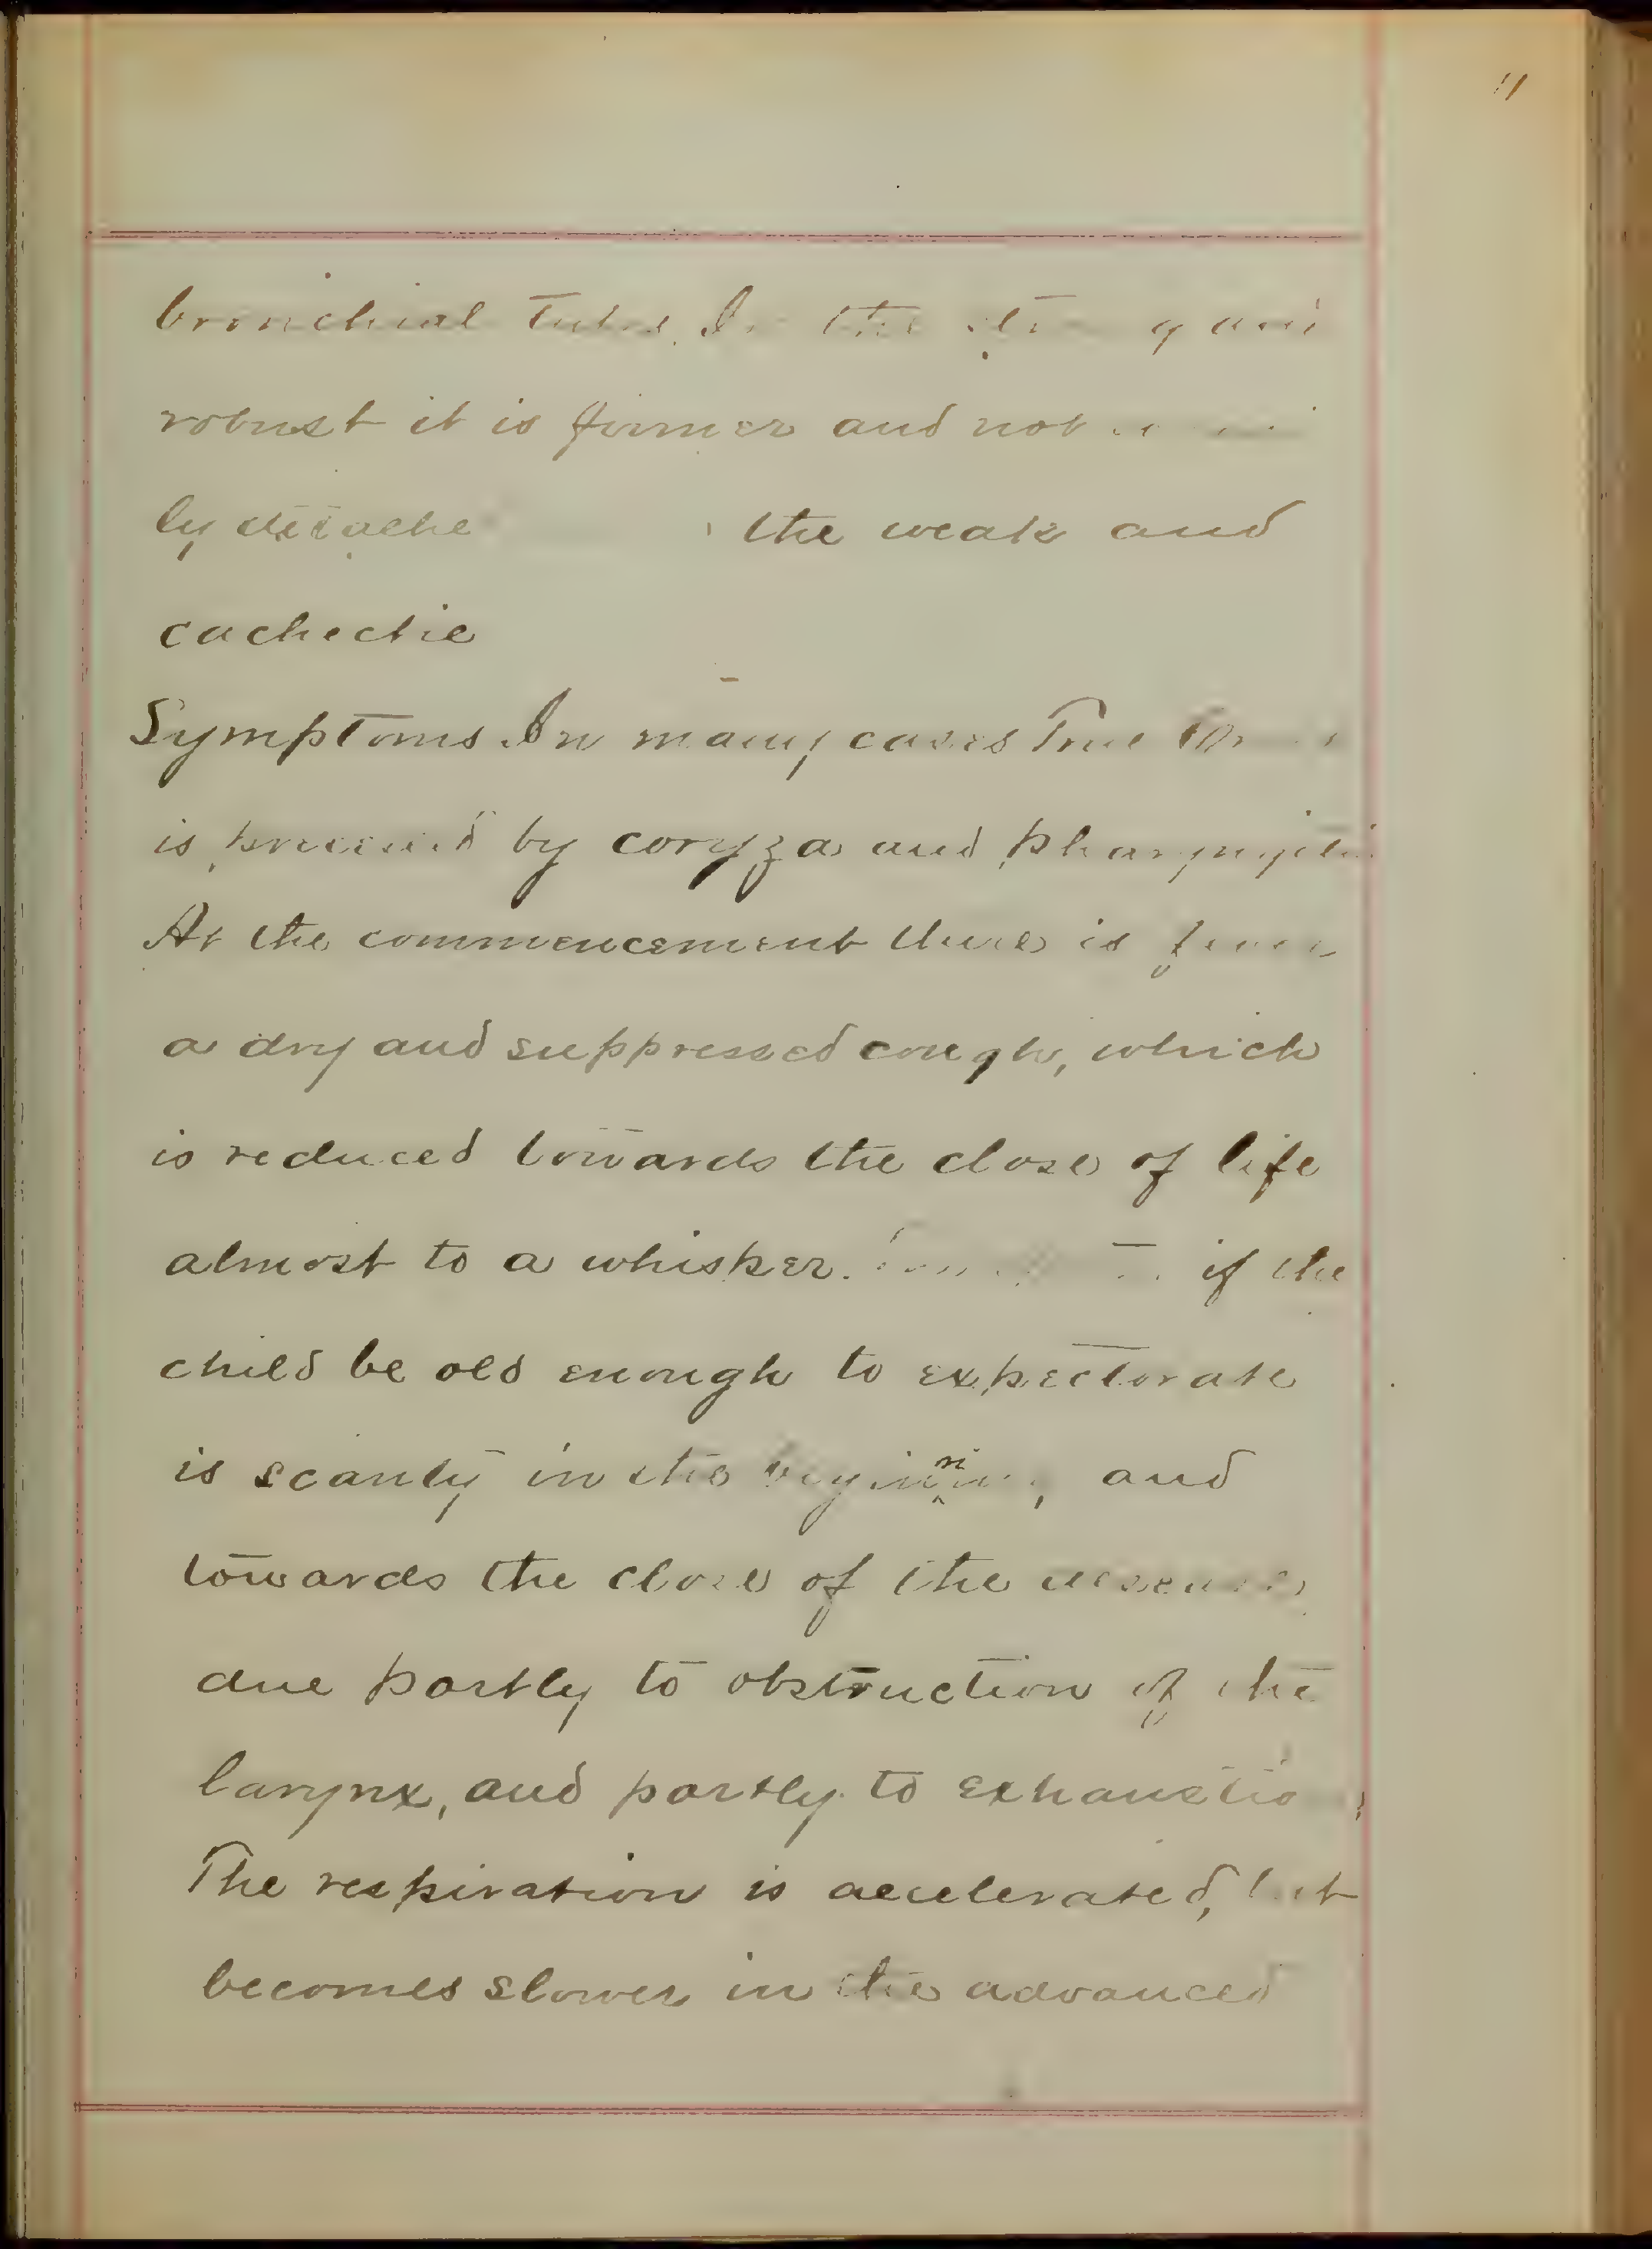 11
bronchial tubes. In the strong and
robust it is firmer and not
ly detache the weak and
cachectic
Symptoms. In many cases True
is preceded by coryza and pharyngitis
At the commencement there is fever
a dry and suppressed cough, which
is reduced towards the close of life
almost to a whisper. if the
child be old enough to expectorate
is scanty in the beginning, and
towards the close of the disease,
due partly to obstruction of the
larynx, and partly to exhaustion,
The respiration is accelerated, but
becomes slower in the advanced